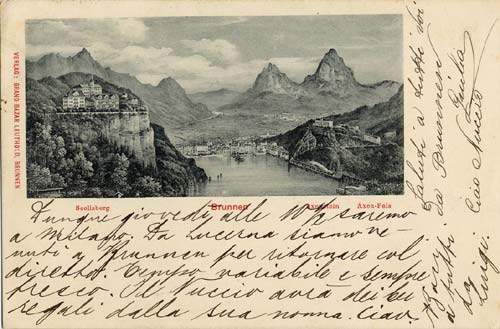 VERLAG: GRAND BAZAR LEUTHOLD, BRUNNEN
Seelisberg
Brunnen
Axenstein
Axen-Fels
Dunque giovedì alle 10½ saremo
a Milano. Da Lucerna siamo ve-
nuti a Brunnen per ritornare col
diretto. Tempo variabile e sempre
fresco. Il Nuccio avrà dei bei
regali dalla sua nonna. Ciao
a tutti
Luigi
Saluti a tutti voi
da Brunnen
Giulia
Ciao Nuccio